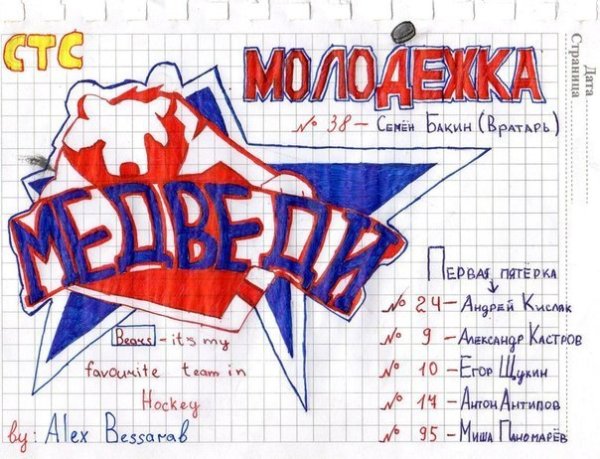 СТС
МОЛОДЕЖКА
Дата
Страница
№ 38 – Семён Бакин (Вратарь)
МЕДВЕДИ
Первая пятёрка
№ 24 – Андрей Кисляк
№ 9 – Александр Кастров
№ 10 – Егор Щукин
№ 14 – Антон Антипов
№ 95 – Миша Паномарёв
Bears – it's my
favourite team in
Hockey
by: Alex Bessarab